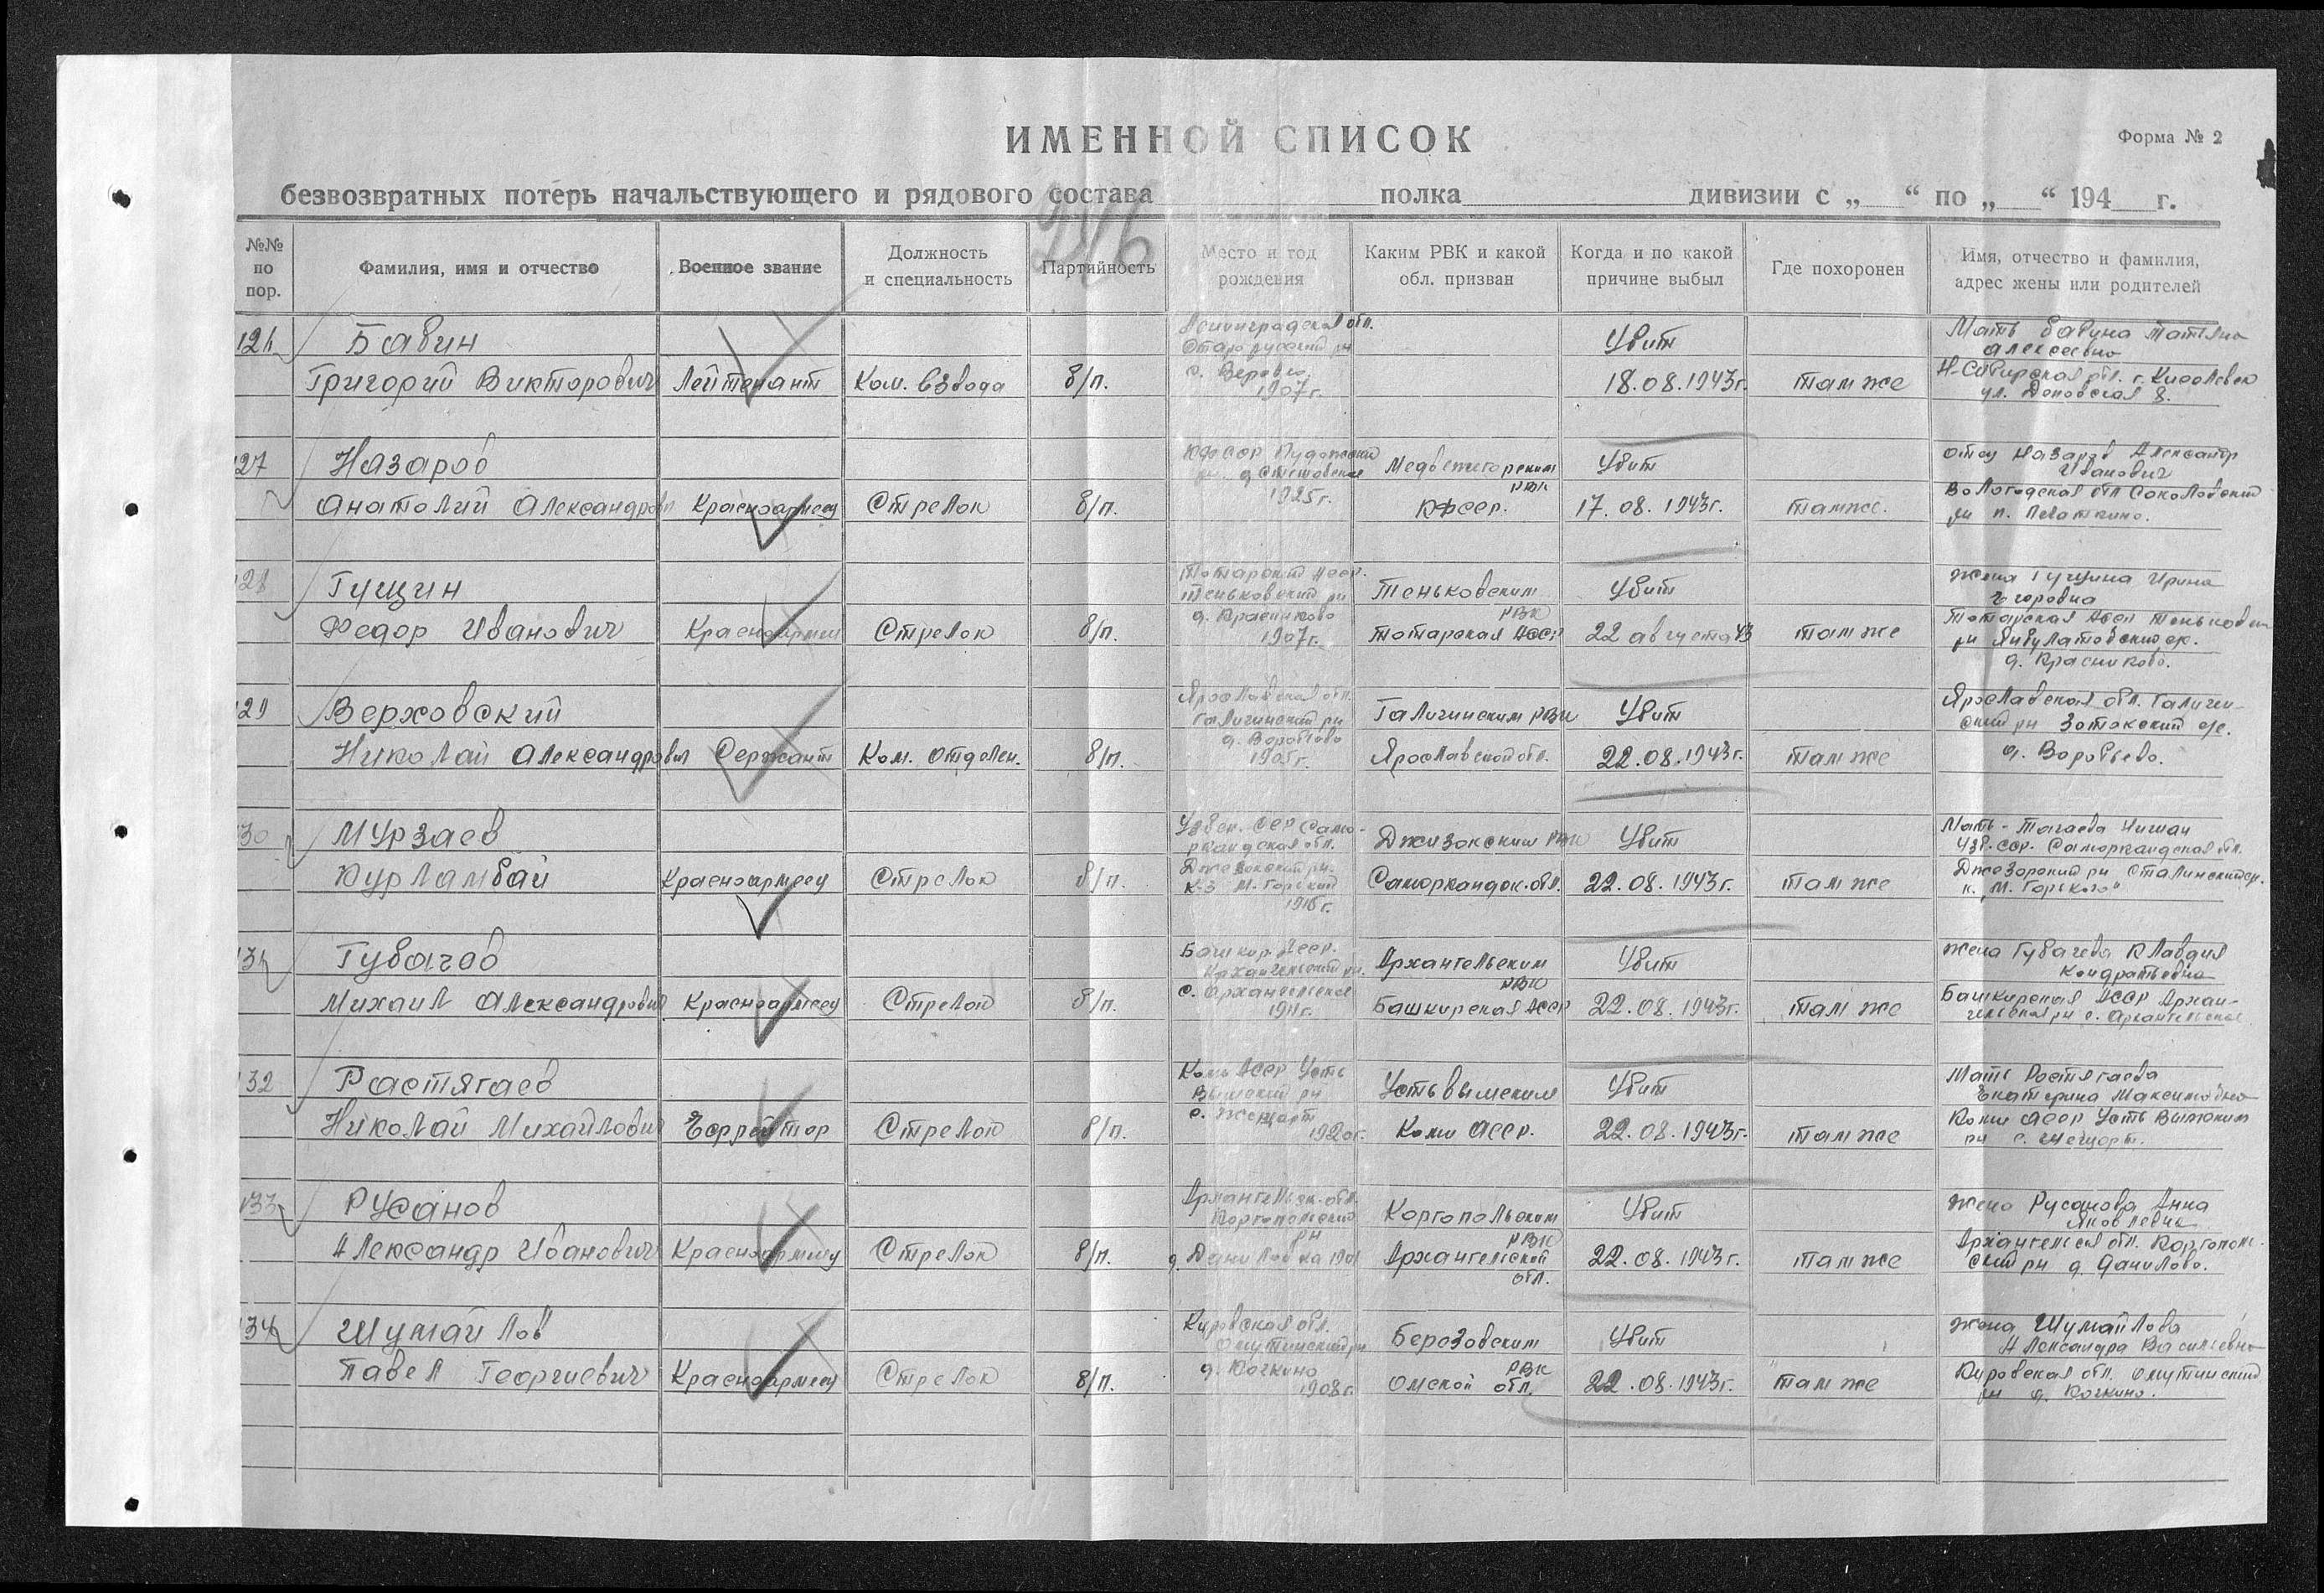 ИМЕННОЙ СПИСОК
Форма № 2
безвозвратных потерь начальствующего и рядового состава полка дивизии с „ “ по „ “ 194 г.
№№ по пор.
Фамилия, имя и отчество
Военное звание
Должность и специальность
Партийность
Место и год рождения
Каким РВК и какой обл. призван
Когда и по какой причине выбыл
Где похоронен
Имя, отчество и фамилия, адрес жены или родителей
Бабин
Григорий Викторович Лейтенант Ком. взвода б/п.
Ленинградская обл.
Старорусский рн
1907 г.
Убит
18.08.1943г. там же
Мать Бабина Татьяна
Алексеевна
Н-Сибирская обл. г. Киселевск
ул. 8.
27 Назаров
Анатолий Александров Красноармеец Стрелок б/п.
КФССР Пудожский
1925 г.
Медвежегорским
РВК
КФССР.
Убит
17.08.1943г. там же.
отец Назаров Александр
Иванович
Вологодская обл Соколовский
рн п. Печаткино.
28 Гущин
Федор Иванович Красноармеец Стрелок б/п.
Татарский АССР.
Теньковский рн
д. Красниково
1907г.
Теньковским
РВК
Татарская АССР
Убит
22 августа 43 там же
жена Гущина Ирина
Егоровна
Татарская АССР Теньковск
рн
д. Красниково.
29 Верховский
Николай Александрович Сержант Ком. отделен. б/п.
Ярославская обл.
Галичинский рн
д. Воробьево
1905 г.
Галичинским РВК
Ярославской обл.
Убит
22.08.1943г. там же
Ярославская обл. Галичин-
ский рн
д. Воробьево.
30 Мурзаев
Курламбай Красноармеец Стрелок б/п.
Узбек. ССР Сама-
ркандская обл.
к-з М. Горький
1916 г.
Джизакским РВК
Самарkандск. обл.
Убит
22.08.1943г. там же
Мать - Тагаева
Узб. ССР. Самаркандская обл.
к. „М. Горького“
Губачев
Михаил Александрович Красноармеец Стрелок б/п.
Башкир. АССР.
Архангельский рн.
с. Архангельское
1911г.
Архангельским
РВК
Башкирская АССР
Убит
22.08.1943г. там же
жена Губачева Клавдия
Кондратьевна
Башкирская АССР Архан-
гельский рн с. Архангельское
32 Растягаев
Николай Михайлович Ефрейтор Стрелок б/п.
Коми АССР Усть
Вымский рн
с. Жешарт
1920г.
Устьвымским
Коми АССР.
Убит
22.08.1943г. там же
Мать Растягаева
Екатерина Максимовна
Коми АССР Усть Вымским
рн с. Жешарт.
33 Русанов
Александр Иванович Красноармеец Стрелок б/п.
Архангельск. обл.
Каргопольский
рн
д. Даниловка
Каргопольским
РВК
Архангельской
обл.
Убит
22.08.1943г. там же
жена Русанова Анна
Яковлевна
Архангельск обл. Каргополь-
ский рн д. Данилово.
34 Шумайлов
Павел Георгиевич Красноармеец Стрелок б/п.
Кировская обл.
Омутнинский рн
д. Кочкино
1908г.
Березовским
РВК
Омской обл.
Убит
22.08.1943г. там же
жена Шумайлова
Александра Васильевна
Кировская обл. Омутнинский
рн д. Кочкино.